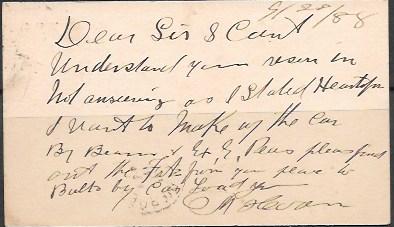 9/28/88
Dear Sir I Cant
Understand your reson in
Not answering as I Stated Heartofor
I Want to Make up the Car
By Beans & Peas please find
out the from your place to
Bulto by Car Load